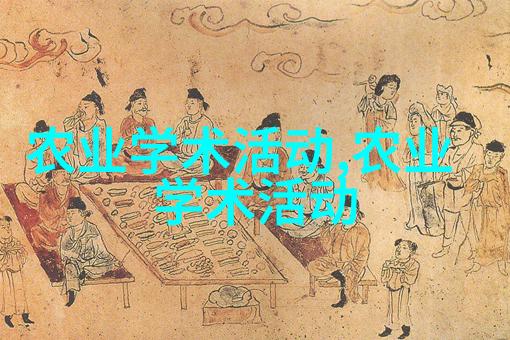 农业学术活动,农业
学术活动